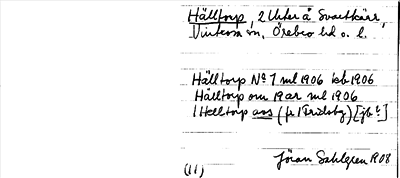 Hälltorp, 2 Uter å Svartkärr,
Vintrosa sn, Örebro hd o. l.
Hälltorp No 7 ml 1906 lsb 1906
Hälltorp om 19ar ml 1906
1 Helltorp aos (fr 1 Fridsby) [jb:t]
Jöran Sahlgren R08
(11)